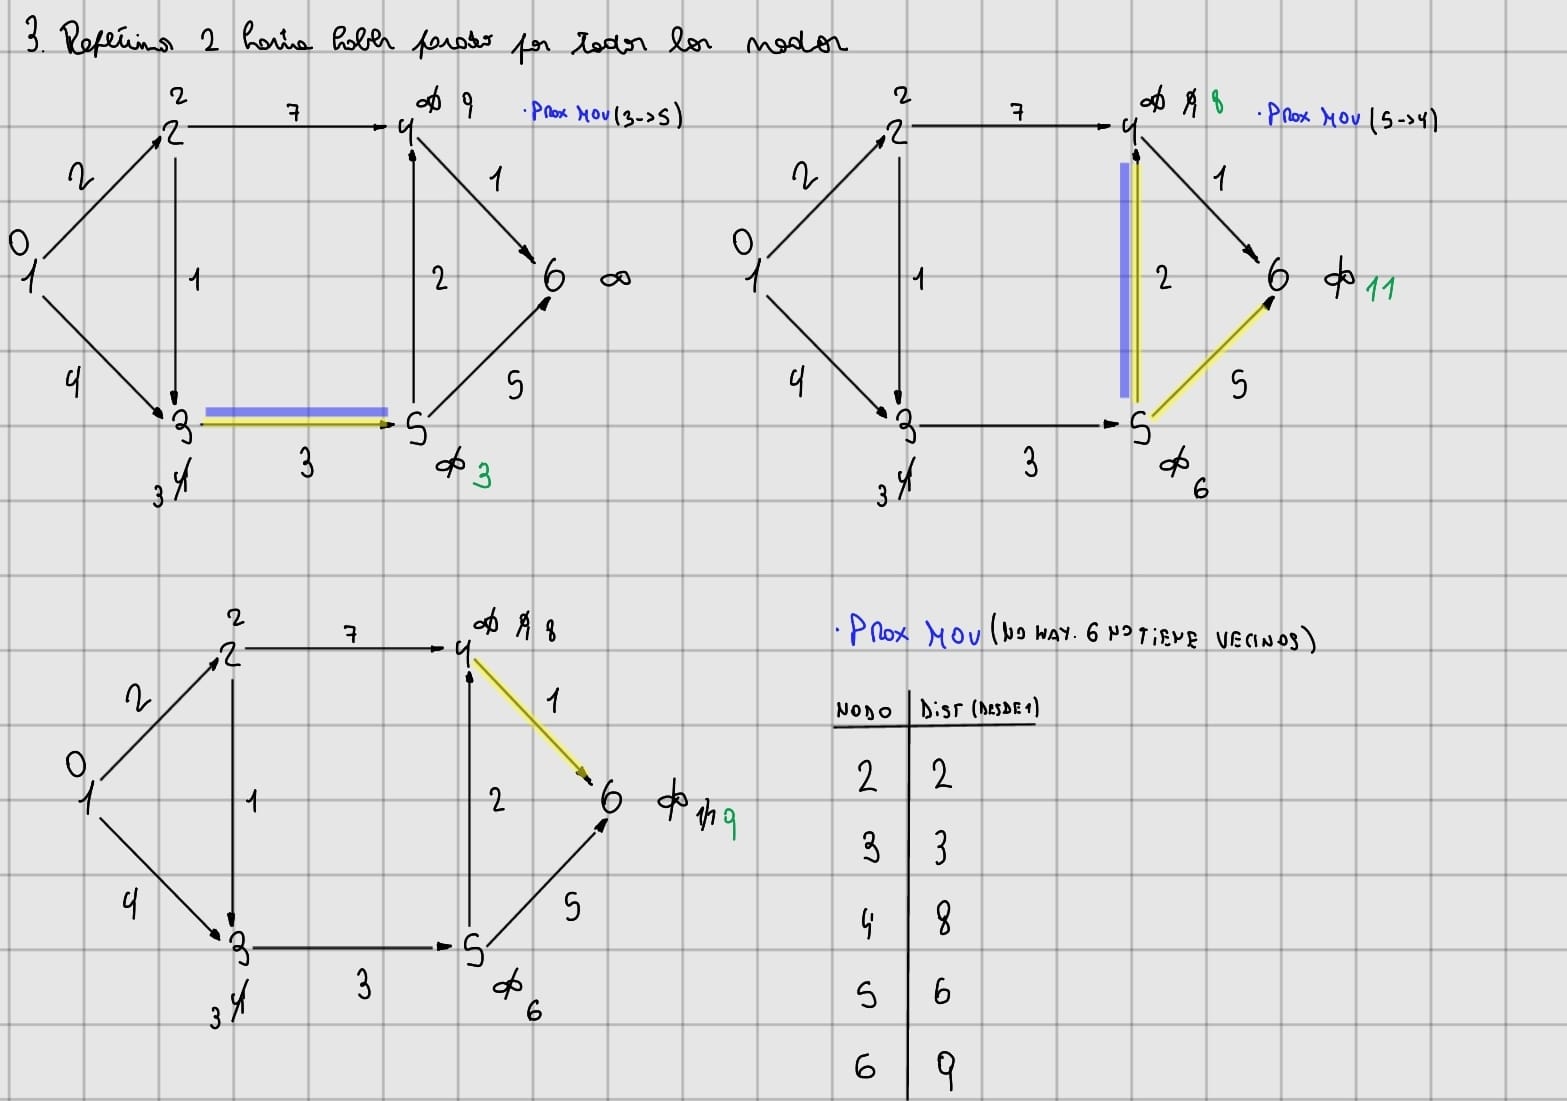 3. Repetimos 2 hasta haber pasado por todos los nodos
2 7 4 ∞ 9 · PROX MOV (3->5)
2 1
0
1 1 2 6 ∞
4 5
3 5
3 4 3 ∞ 3
2 7 4 ∞ 9 8 · PROX MOV (5->4)
2 1
0
1 1 2 6 ∞ 11
4 5
3 5
3 4 3 ∞ 6
2 7 4 ∞ 9 8
2 1
0
1 1 2 6 ∞ 11 9
4 5
3 5
3 4 3 ∞ 6
· PROX MOV (NO HAY. 6 NO TIENE VECINOS)
NODO DIST (DESDE 1)
2 2
3 3
4 8
5 6
6 9